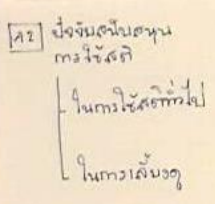 A2 ปัจจัยสนับสนุน
การใช้สติ
ในการใช้สติทั่วไป
ในการเลี้ยงดู